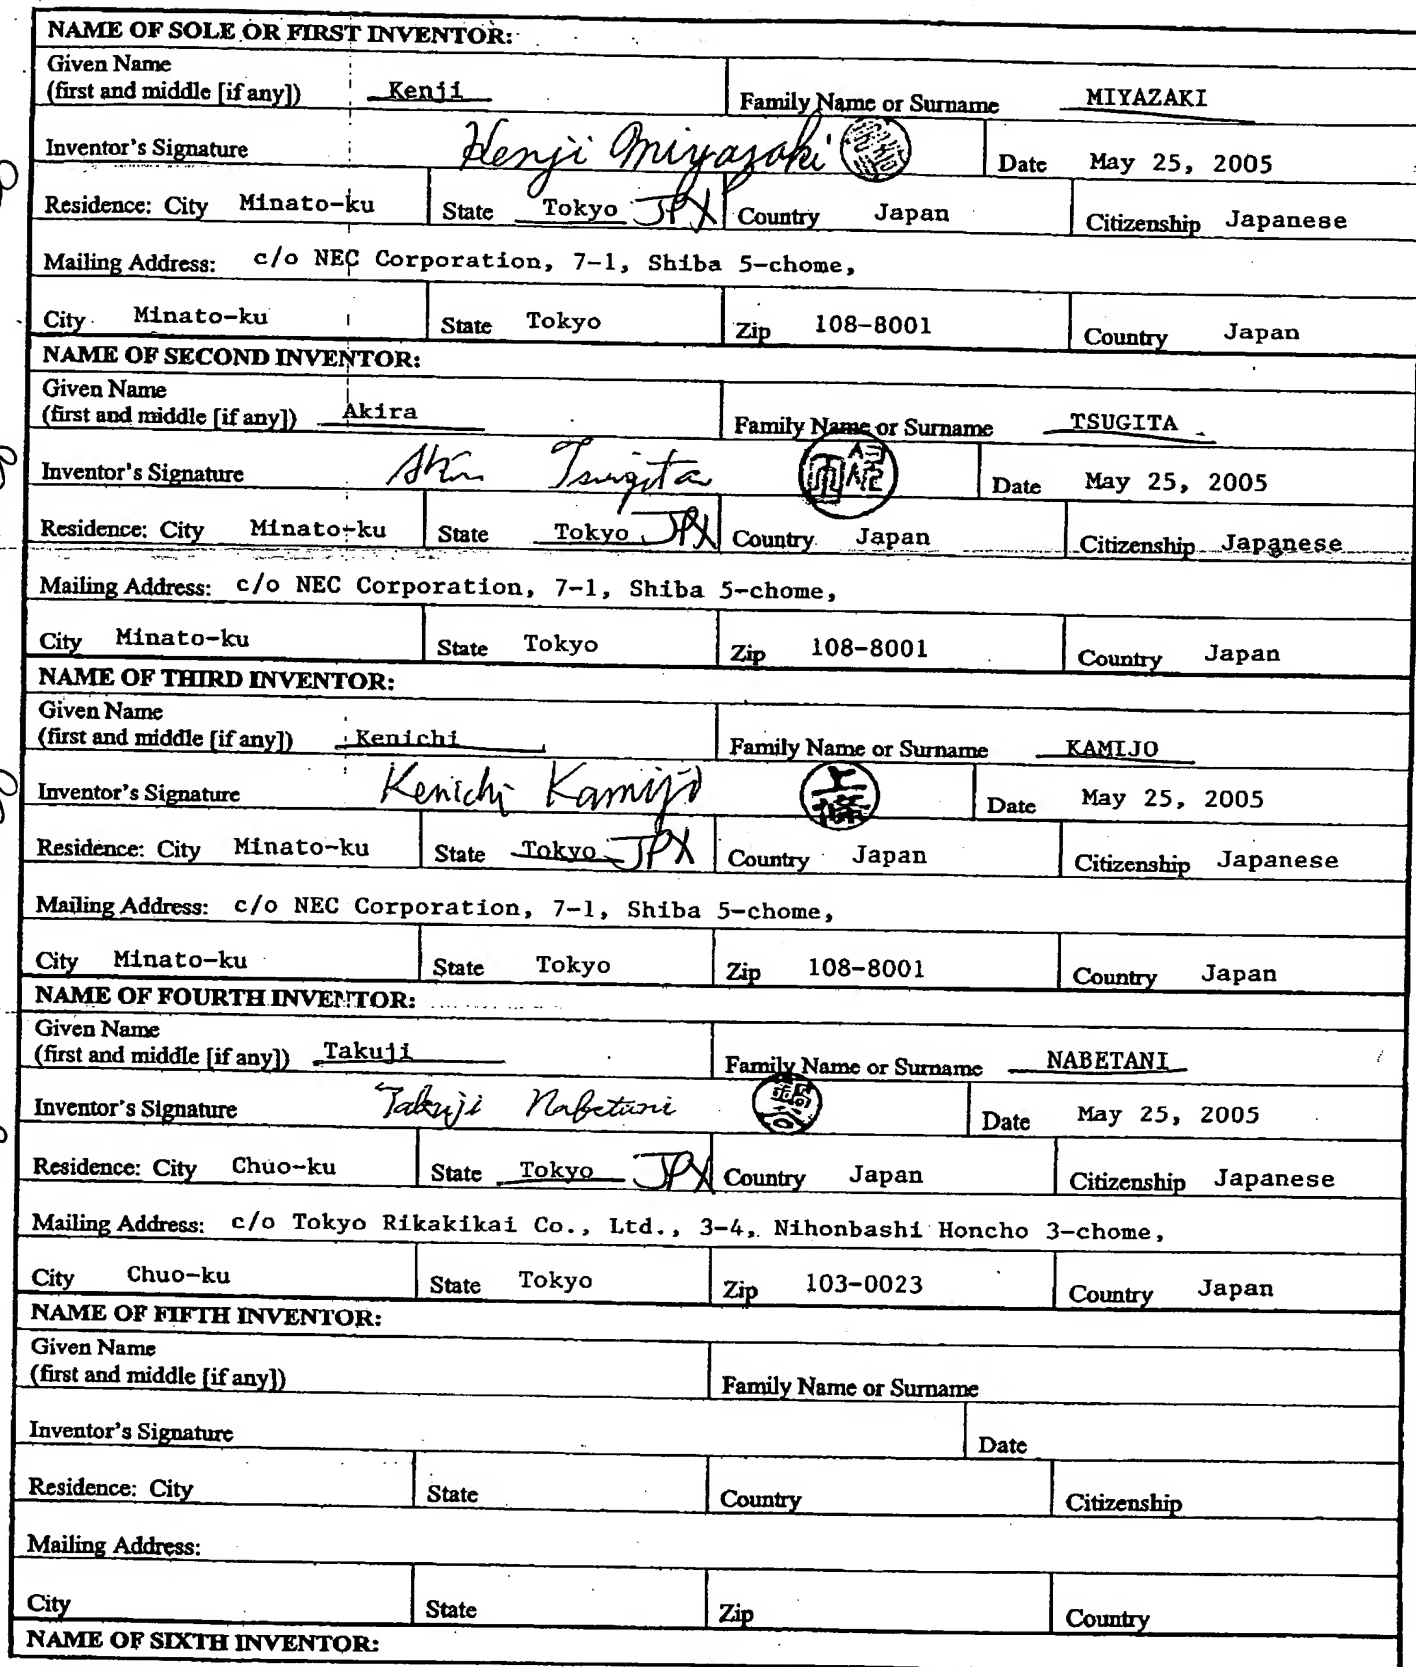 NAME OF SOLE OR FIRST INVENTOR:
Given Name
(first and middle [if any]) Kenji Family Name or Surname MIYAZAKI
Inventor's Signature Kenji Miyazaki Date May 25, 2005
Residence: City Minato-ku State Tokyo JPX Country Japan Citizenship Japanese
Mailing Address: c/o NEC Corporation, 7-1, Shiba 5-chome,
City Minato-ku State Tokyo Zip 108-8001 Country Japan
NAME OF SECOND INVENTOR:
Given Name
(first and middle [if any]) Akira Family Name or Surname TSUGITA
Inventor's Signature Akira Tsugita Date May 25, 2005
Residence: City Minato-ku State Tokyo JPX Country Japan Citizenship Japanese
Mailing Address: c/o NEC Corporation, 7-1, Shiba 5-chome,
City Minato-ku State Tokyo Zip 108-8001 Country Japan
NAME OF THIRD INVENTOR:
Given Name
(first and middle [if any]) Kenichi Family Name or Surname KAMIJO
Inventor's Signature Kenichi Kamijo 上條 Date May 25, 2005
Residence: City Minato-ku State Tokyo JPX Country Japan Citizenship Japanese
Mailing Address: c/o NEC Corporation, 7-1, Shiba 5-chome,
City Minato-ku State Tokyo Zip 108-8001 Country Japan
NAME OF FOURTH INVENTOR:
Given Name
(first and middle [if any]) Takuji Family Name or Surname NABETANI
Inventor's Signature Takuji Nabetani Date May 25, 2005
Residence: City Chuo-ku State Tokyo JPX Country Japan Citizenship Japanese
Mailing Address: c/o Tokyo Rikakikai Co., Ltd., 3-4, Nihonbashi Honcho 3-chome,
City Chuo-ku State Tokyo Zip 103-0023 Country Japan
NAME OF FIFTH INVENTOR:
Given Name
(first and middle [if any]) Family Name or Surname
Inventor's Signature Date
Residence: City State Country Citizenship
Mailing Address:
City State Zip Country
NAME OF SIXTH INVENTOR: